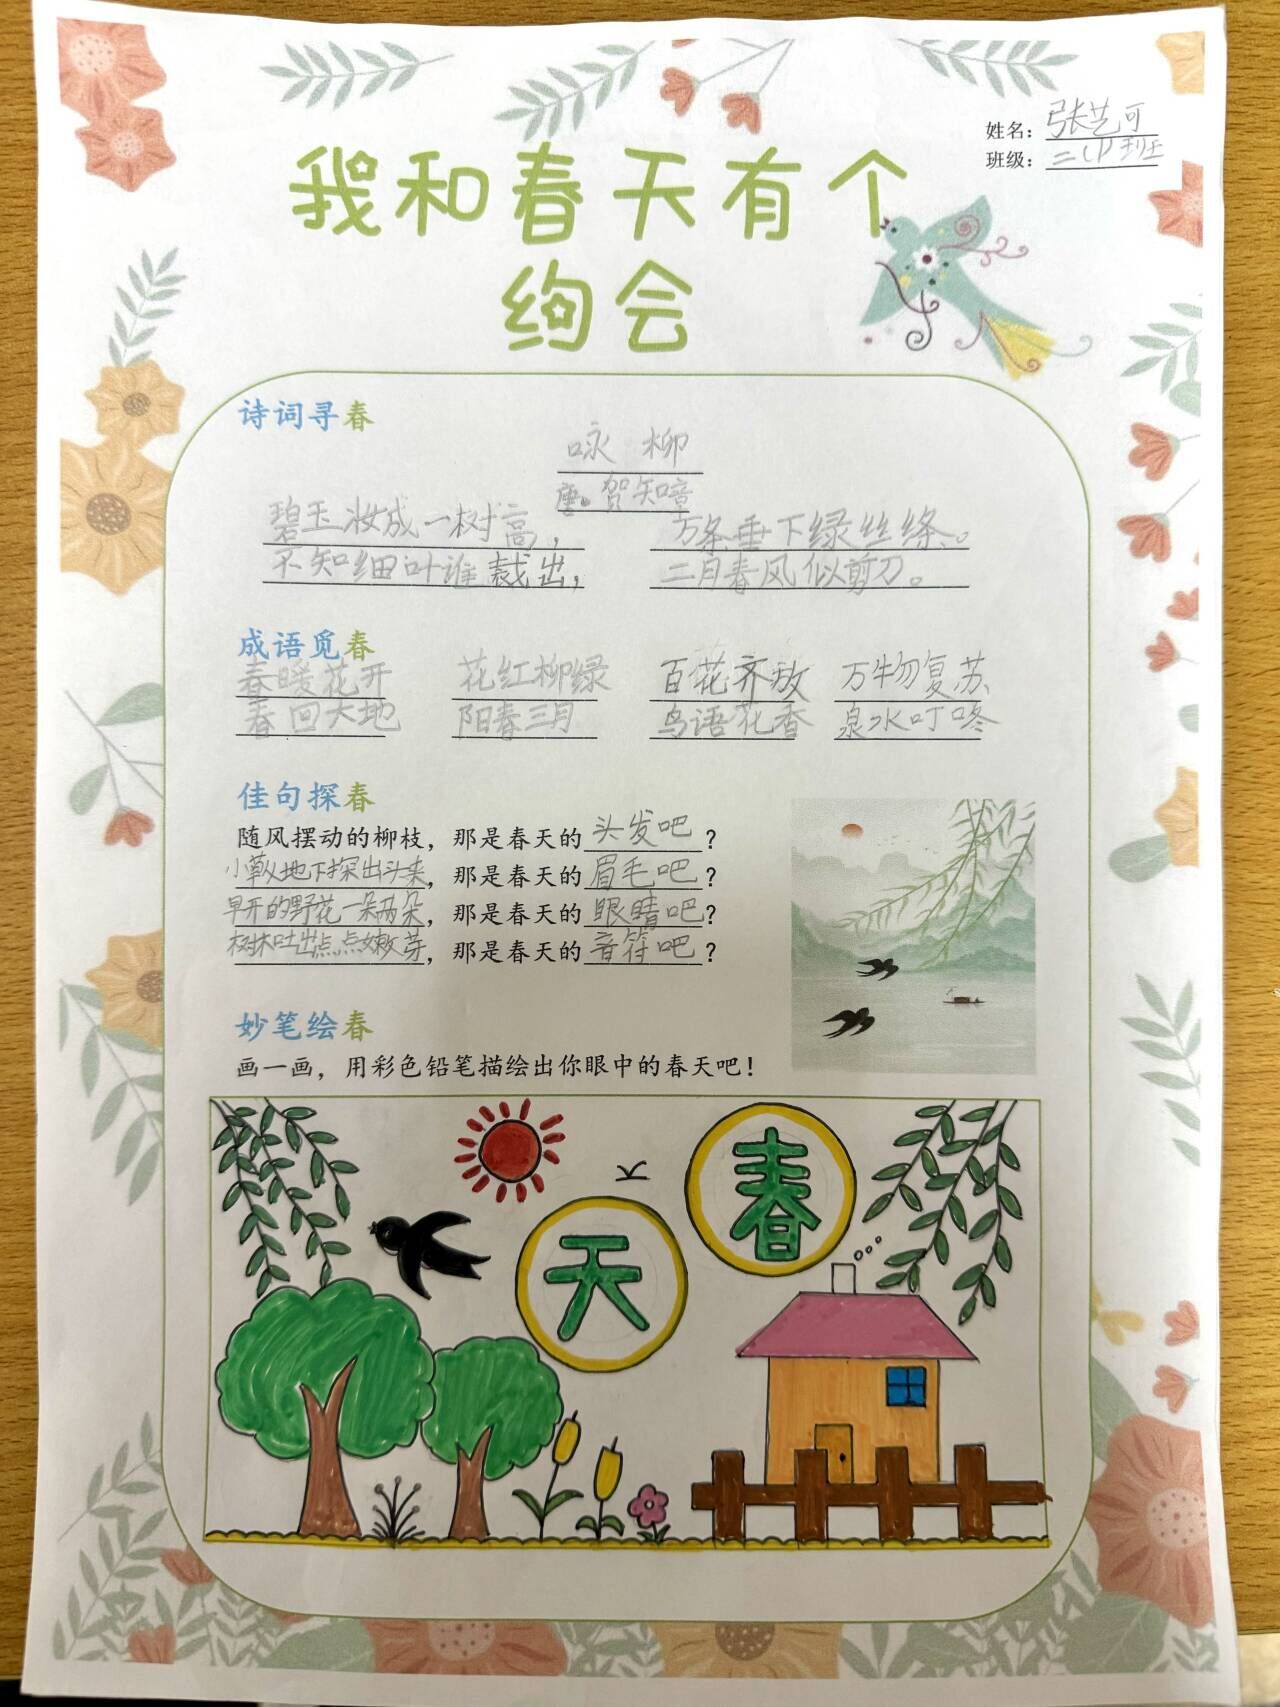 姓名：张艺可
班级：二(1)班
我和春天有个
约会
诗词寻春
咏 柳
唐。贺知章
碧玉妆成一树高， 万条垂下绿丝绦。
不知细叶谁裁出， 二月春风似剪刀。
成语觅春
春暖花开 花红柳绿 百花齐放 万物复苏
春回大地 阳春三月 鸟语花香 泉水叮咚
佳句探春
随风摆动的柳枝，那是春天的头发吧？
小草从地下探出头来，那是春天的眉毛吧？
早开的野花一朵两朵，那是春天的眼睛吧？
树木吐出点点嫩芽，那是春天的音符吧？
妙笔绘春
画一画，用彩色铅笔描绘出你眼中的春天吧！
春
天